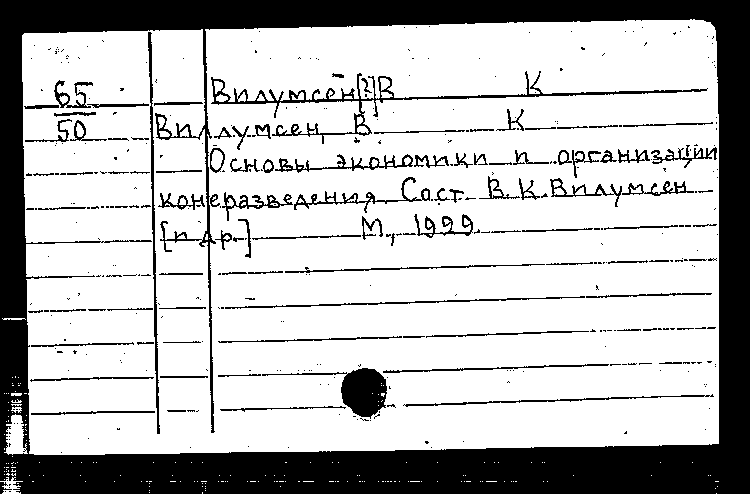 65 Вилумсен[?] В К
50 Виллумсен, В. К
Основы экономики и организации
конеразведения Сост. В. К. Вилумсен
[и др.] М., 1929.